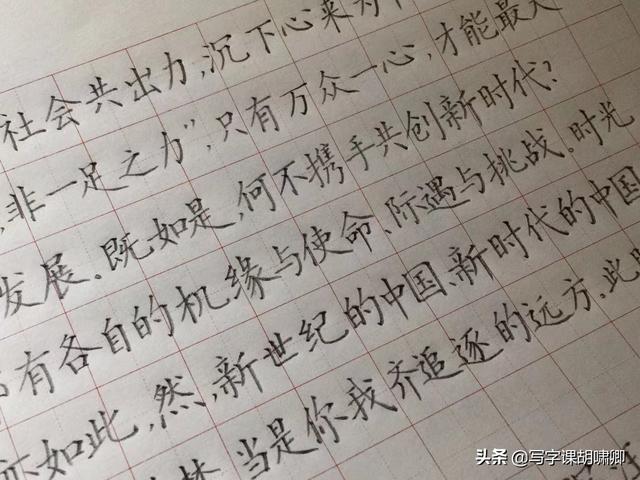 社会共出力,沉下心来为
非一足之力",只有万众一心,才能最大
发展。既如是,何不携手共创新时代?
有各自的机缘与使命、际遇与挑战。时光
亦如此,然,新世纪的中国、新时代的中国
当是你我齐追逐的远方。此
头条 @写字课胡啸卿